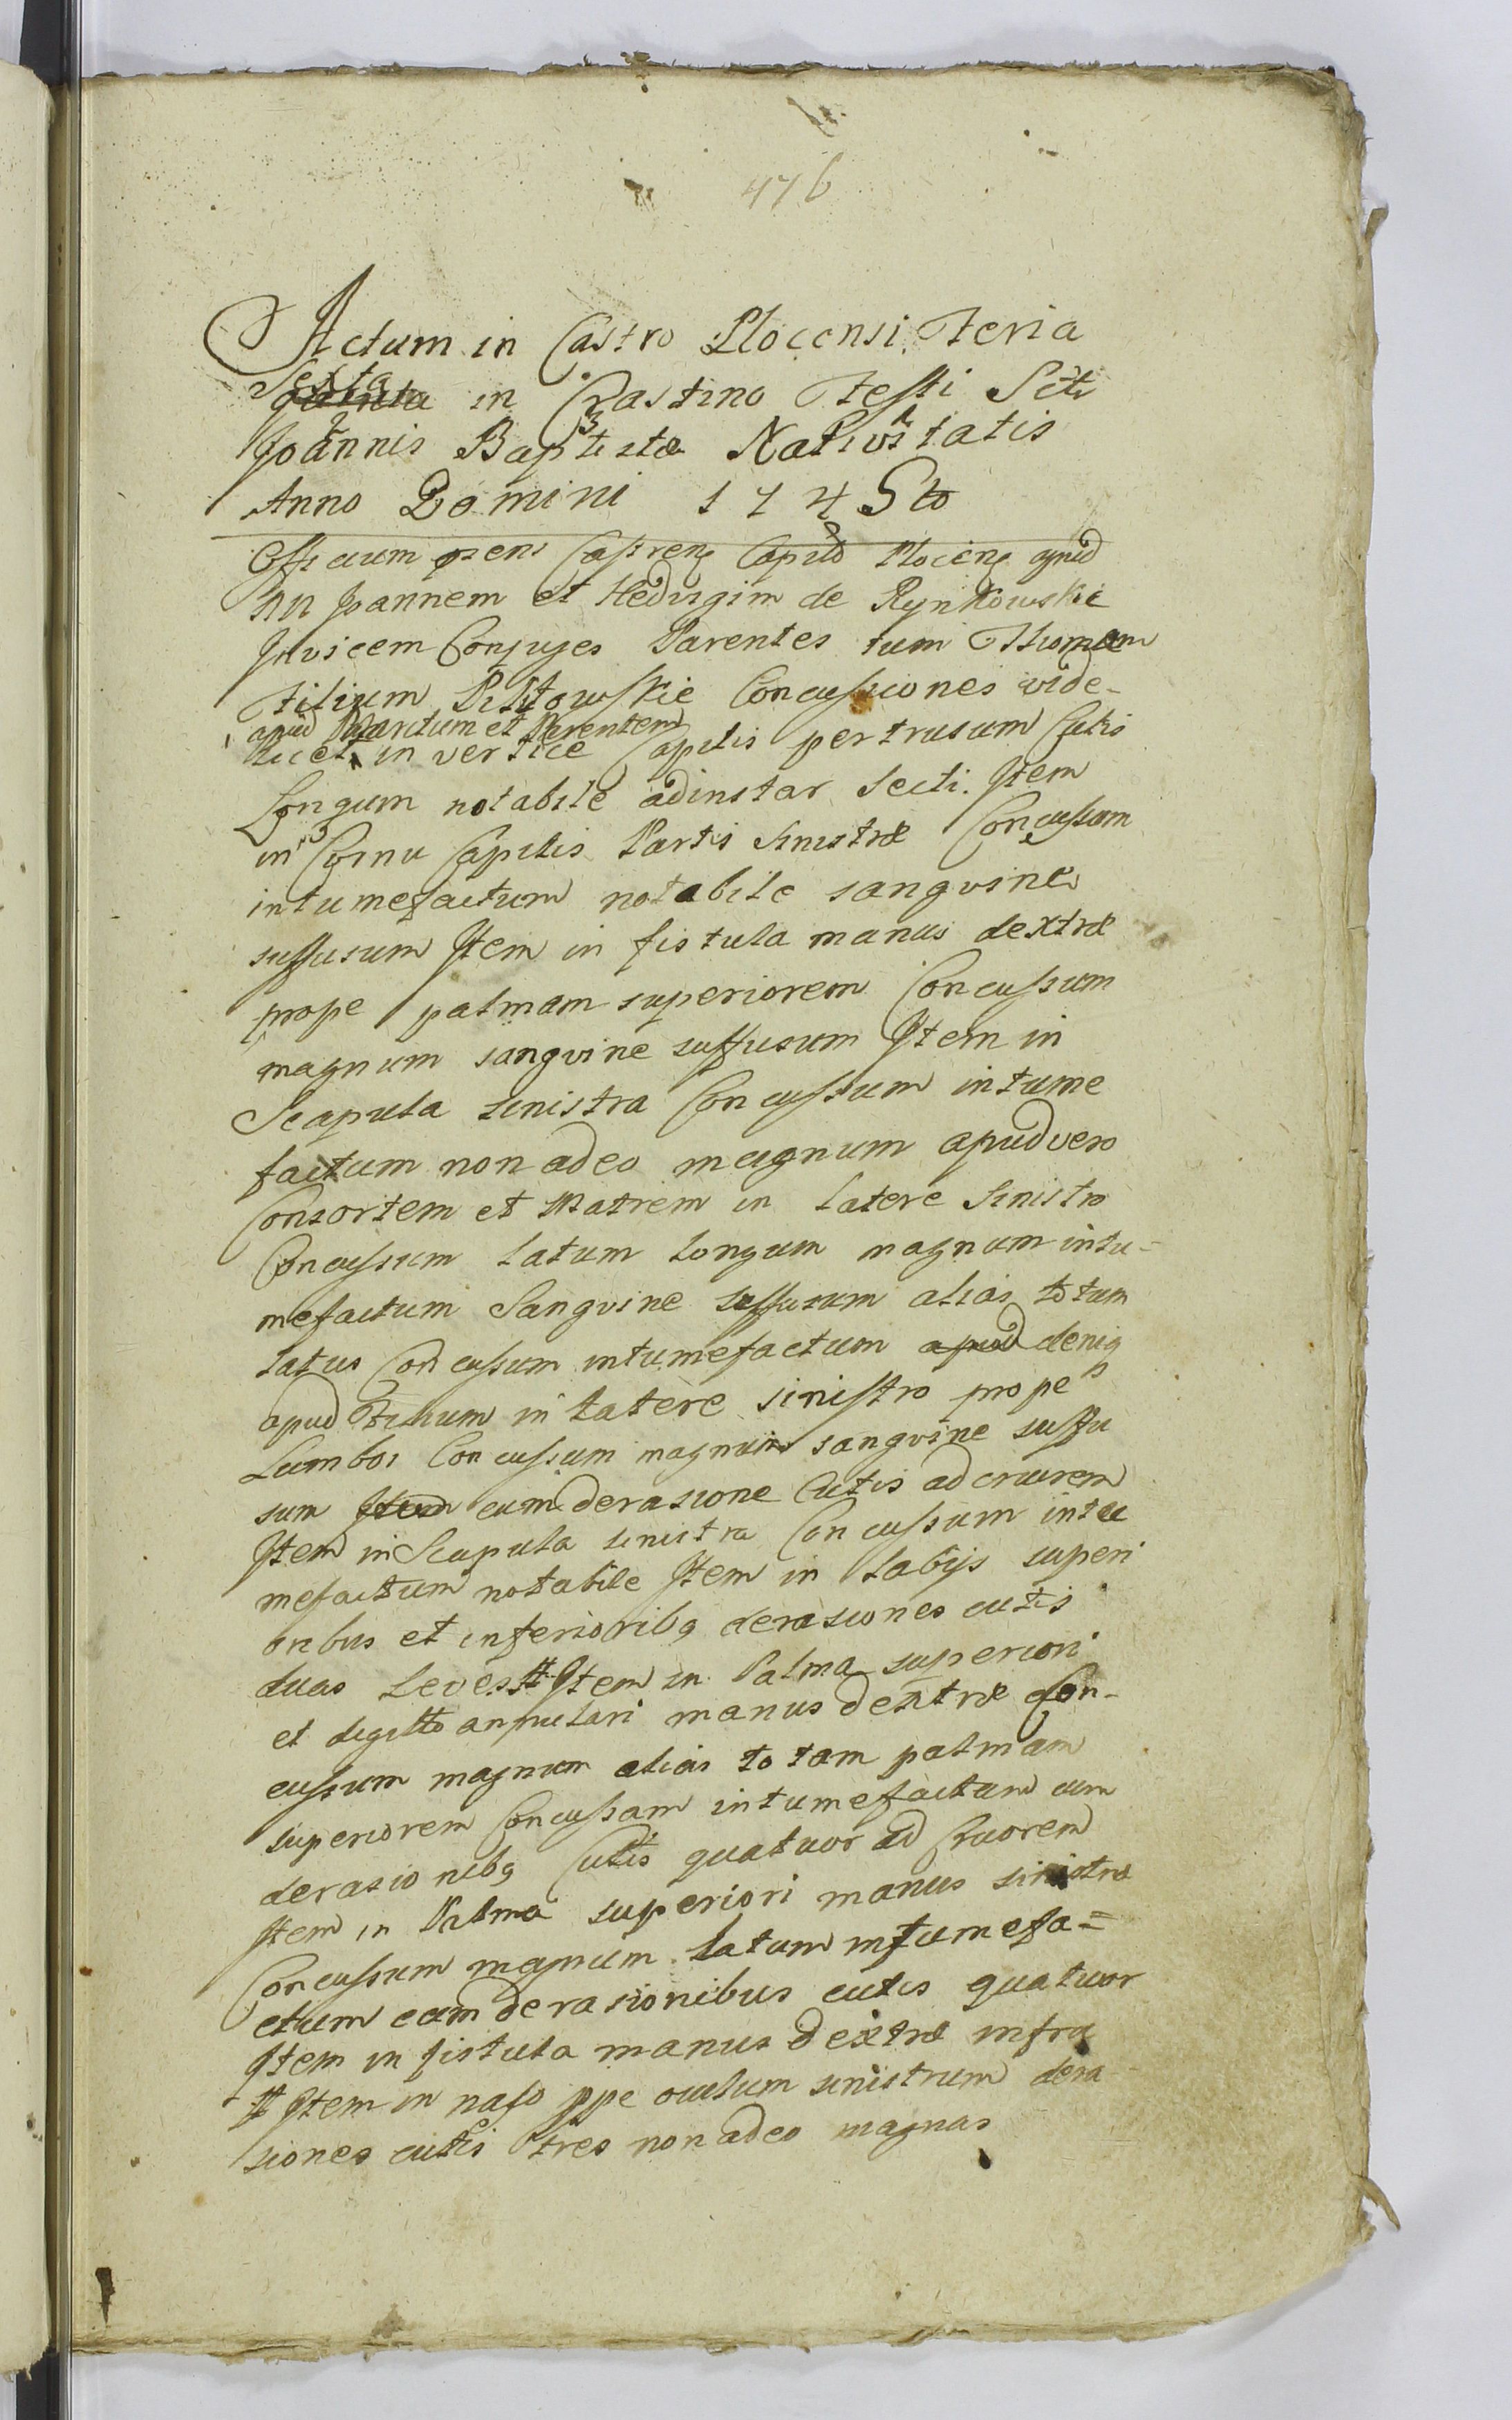 476
Actum in Castro Plocensi Feria
Sexta
quinta in Crastino Festi Scti
Joannis Baptistæ Nativitatis
Anno Domini 1745to
Officium prens Castrense Capit Plocense apud
NN Joannem et Hedvigim de Rynkowskie
Invicem Conjuges Parentes tum Thomam
Filium Concussiones vide-
apud Maritum et Parentem
licet in vertice Capitis pertrusum Cutis
Longum notabile adinstar secti. Item
in Cornu Capitis Partis Sinistræ Concussum
intumefactum notabile sangvine
suffusum Item in fistula manus dextræ
prope palmam superiorem Concussum
magnum sangvine suffusum Item in
Scapula sinistra Concussum intume
factum non adeo magnum apud vero
Consortem et Matrem in Latere Sinistro
Concussum Latum Longum magnum intu-
mefactum Sangvine suffusum alias totum
latus Concussum intumefactum apud deniq
apud Filium in Latere sinistro prope
Lumbos Concussum magnum sangvine suffu
sum Item cum derasione Cutis ad cruorem
Item in Scapula sinistra Concussum intu
mefactum notabile Item in Labijs superi
oribus et inferioribq derasiones cutis
duas Leves # Item in Palma superiori
et digitto annulari manus dextræ Con-
cussum magnum alias totam palmam
superiorem Concussam intumefactam cum
derasionibq Cutis quatuor ad Cruorem
Item in Palma superiori manus sinistræ
Concussum magnum Latum intumefa=
ctum cum derasionibus cutis quatuor
Item in fistula manus dextræ infra
# Item in naso ppe oculum sinistrum dera
siones cutis tres non adeo magnas